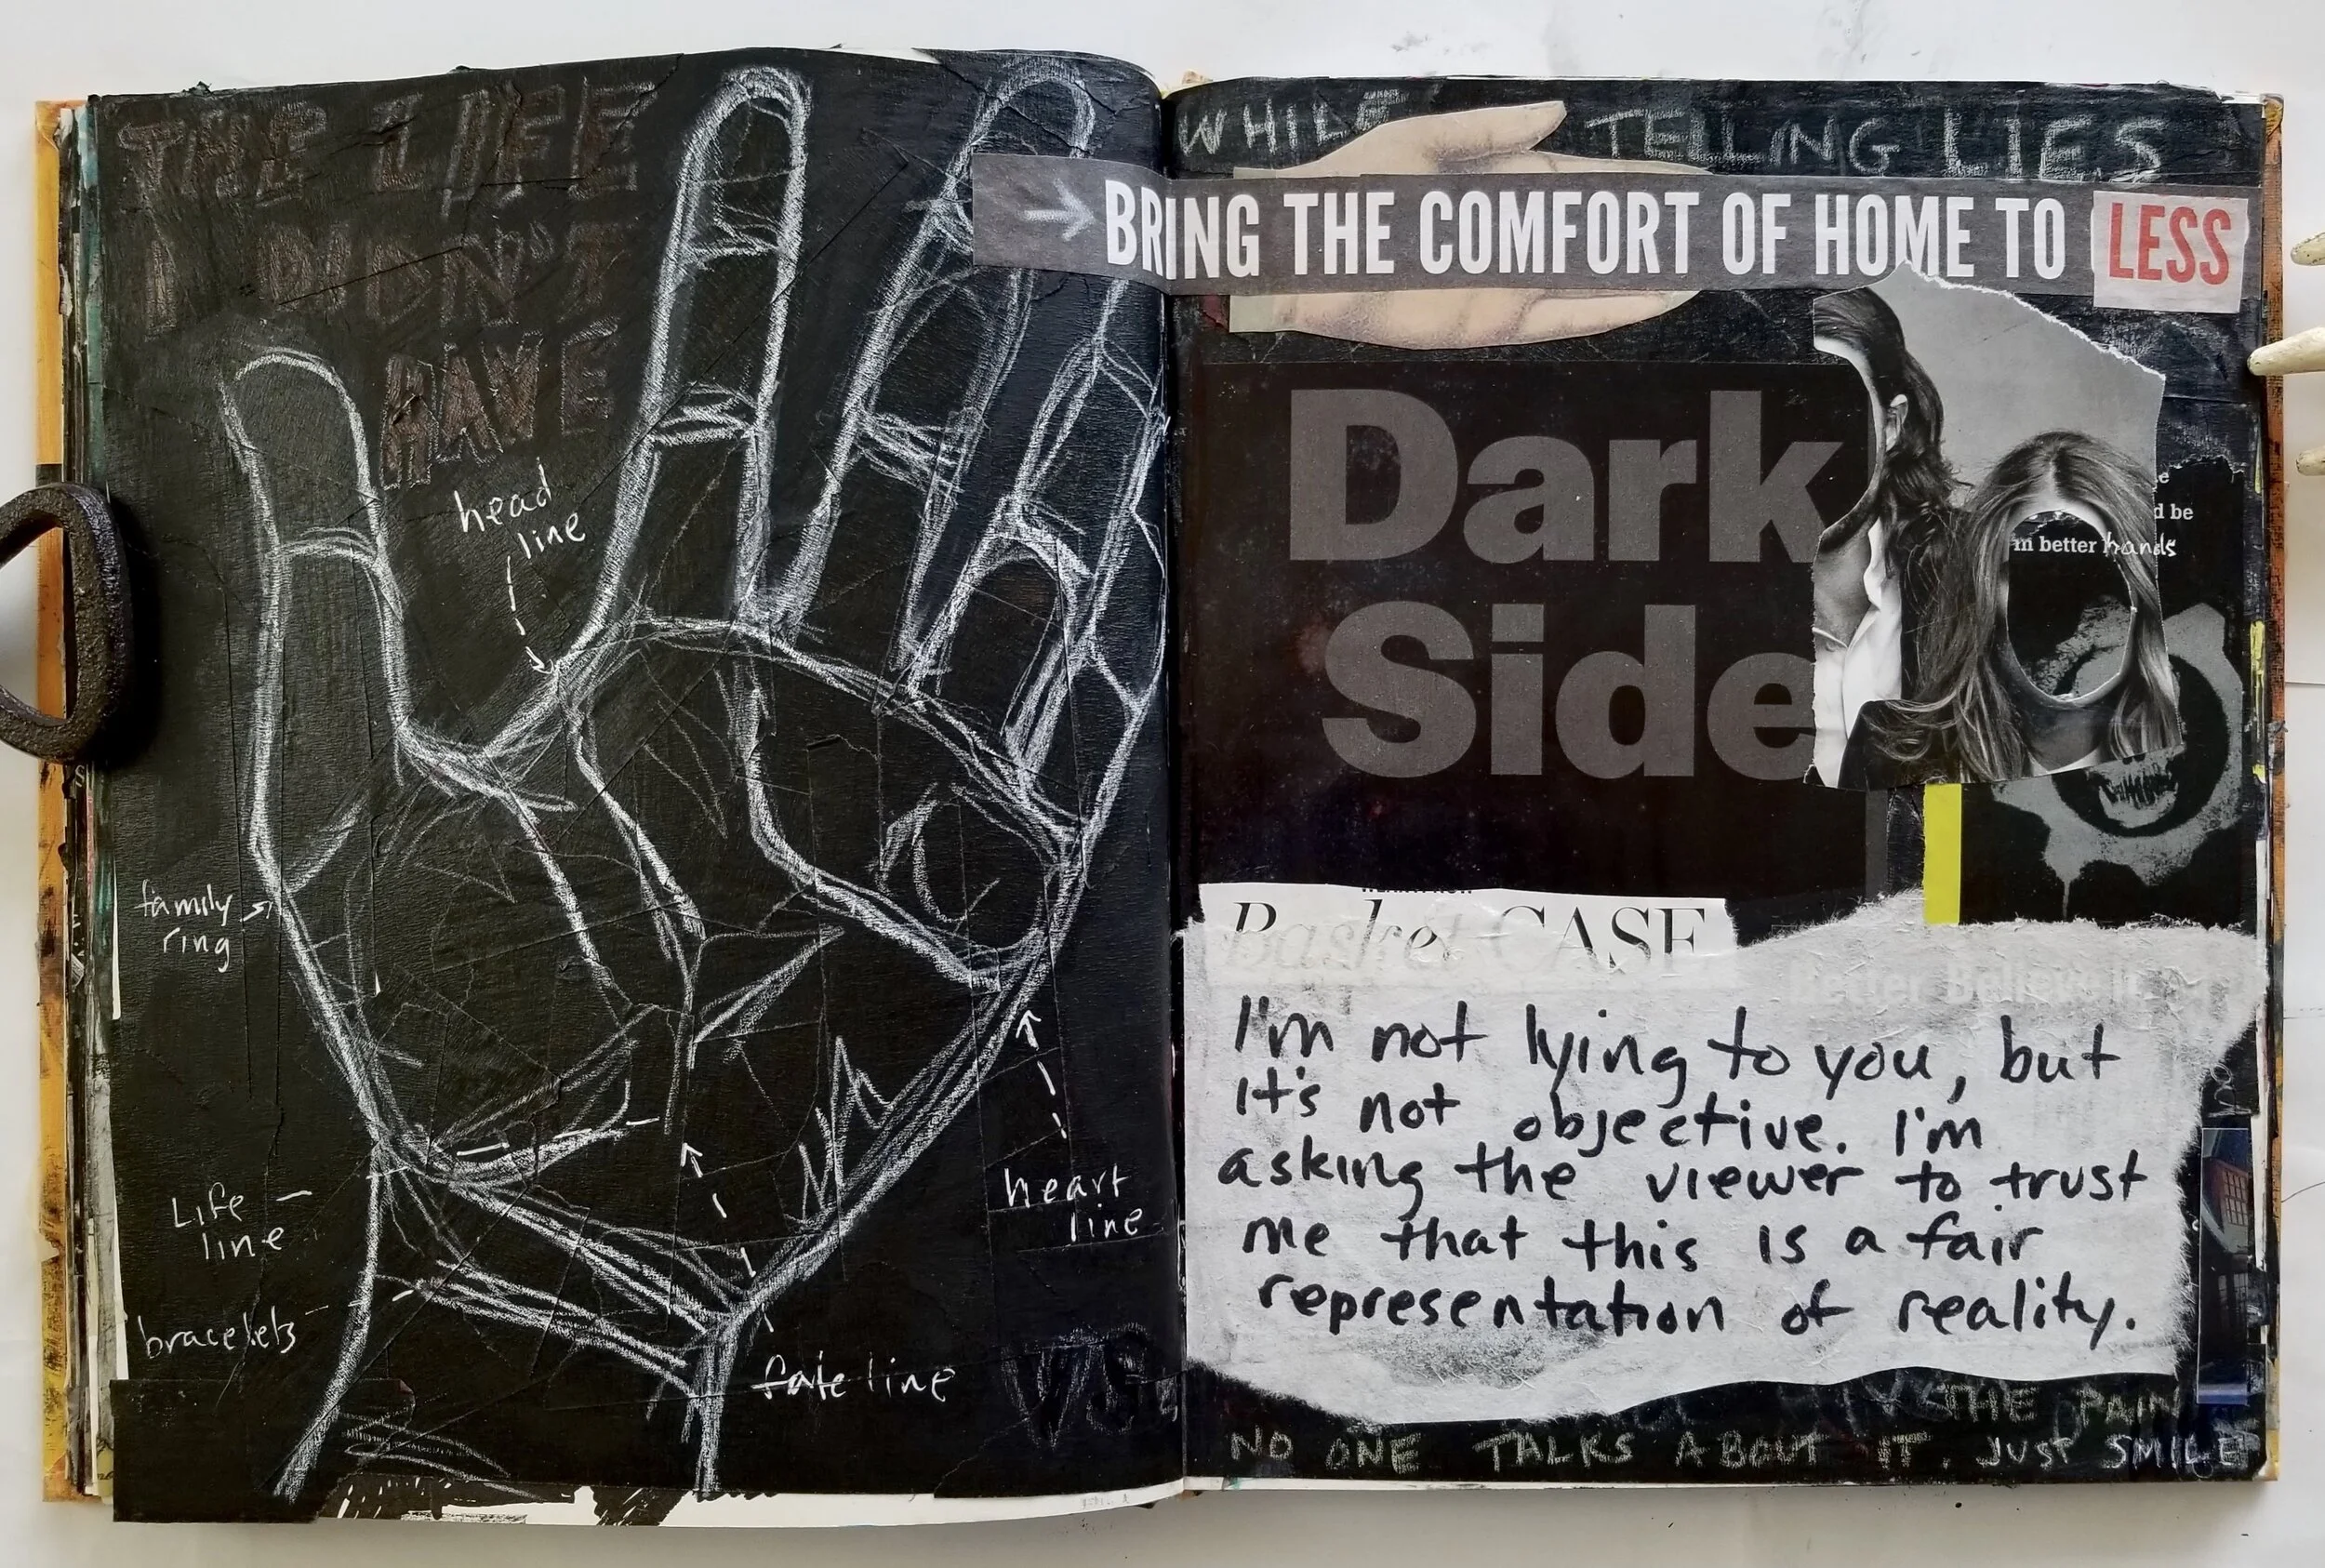 THE LIFE
I DIDN'T
HAVE
head
line
family
ring
Life
line
bracelets
fate line
heart
line
VS
WHILE TELLING LIES
BRING THE COMFORT OF HOME TO LESS
Dark
Side
d be
in better hands
Basket CASE
Better Believe It
I'm not lying to you, but
it's not objective. I'm
asking the viewer to trust
me that this is a fair
representation of reality.
THE PAIN
NO ONE TALKS ABOUT IT. JUST SMILE